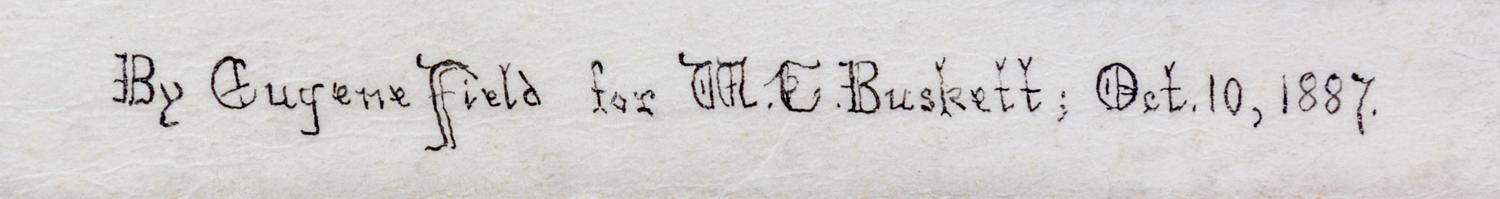 By Eugene Field for M.E.Buskett; Oct.10, 1887.